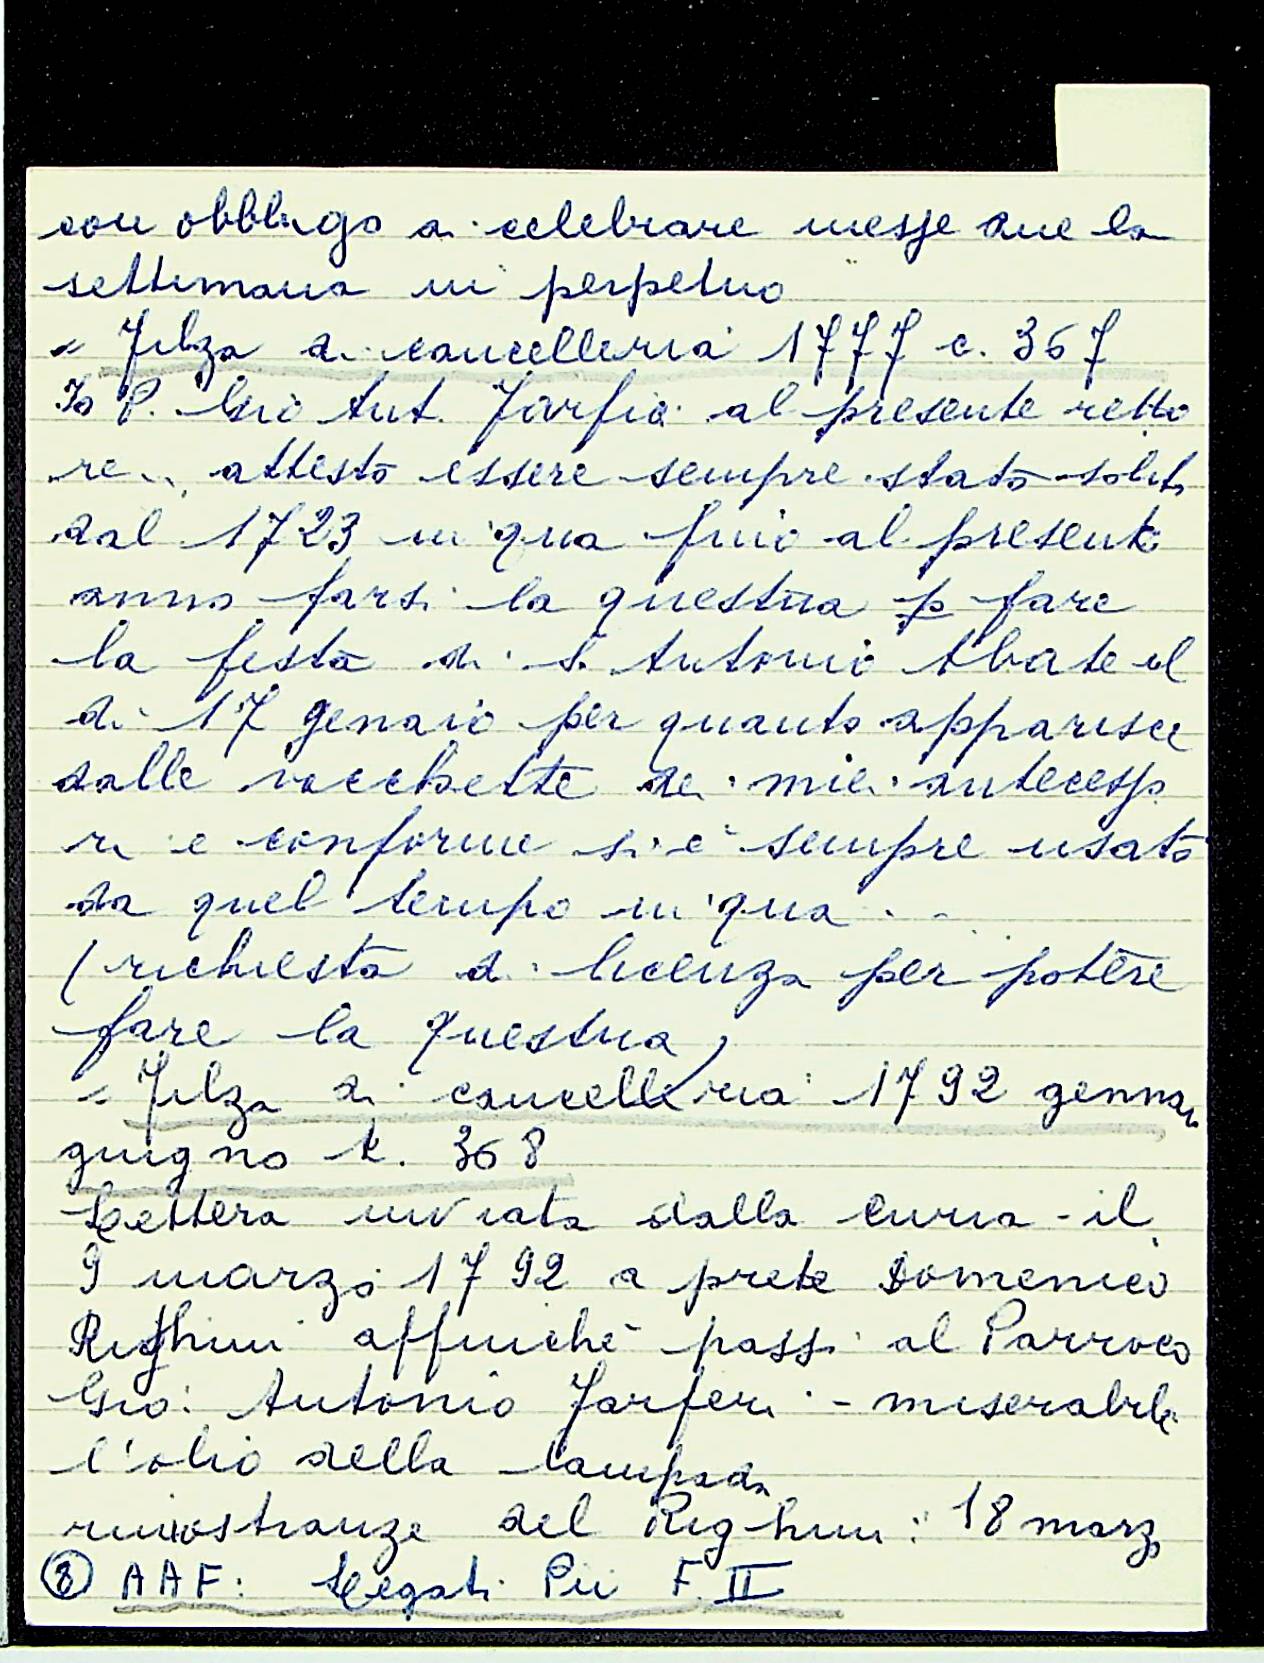 con obbligo di celebrare messe due la
settimana in perpetuo
= Filza di cancelleria 1777 c. 367
Io P. Gio Ant. Farfia al presente retto
re... attesto essere sempre stato solito
dal 1723 in qua fino al presente
anno farsi la questua p fare
la festa di S. Antonio Abate il
dì 17 genaio per quanto apparisce
dalle vacchette de miei antecesso
ri e conforme si è sempre usato
da quel tempo in qua...
(richiesta di licenza per potere
fare la questua)
= Filza di cancelleria 1792 gennaio
giugno k. 368
Lettera inviata dalla Curia il
9 marzo 1792 a prete Domenico
Righini affinché passi al Parroco
Gio: Antonio Farferi - miserabile
l'olio della lampada
rimostranze del Righini: 18 marzo
⑧ AAF: Legati Pii F. II